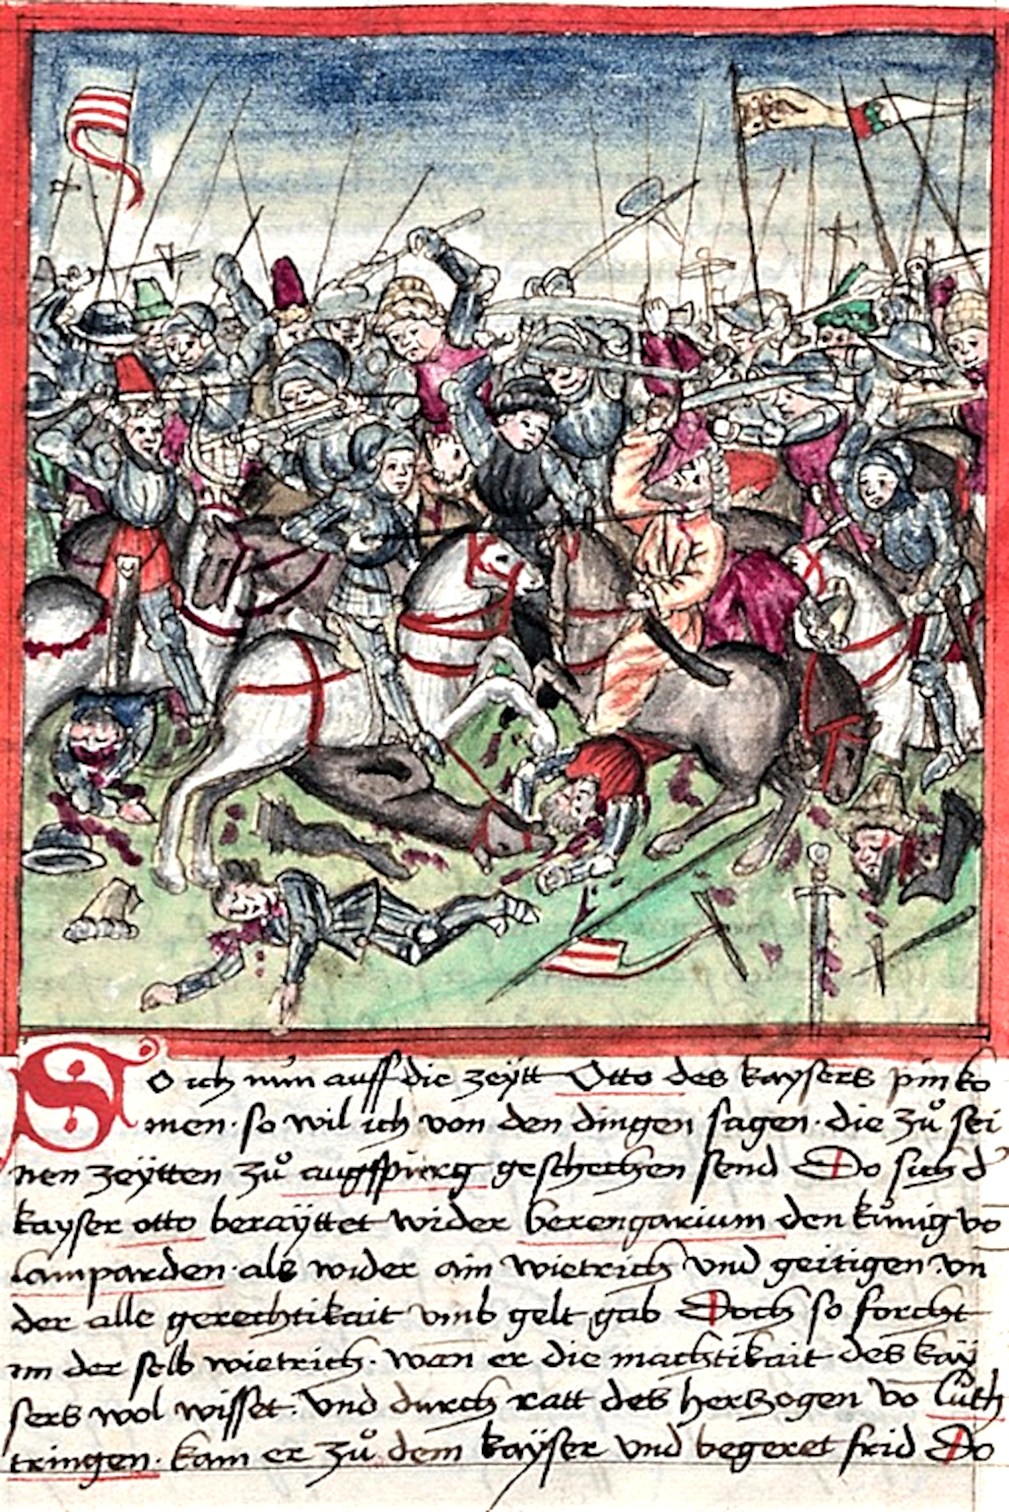 So ich nun auff die zeÿtt Otto des kaysers pin ko
men · so wil ich von den dingen sagen · die zů sei
nen zeÿtten zů augspurg geschechen send Do sich d
kayser otto beraÿttet wider berengarium den kúnig vo
lamparden · als wider ain wietrich vnd geitigen · vn
der alle gerechtikait vmb gelt gab Doch so forcht
im der selb wietrich · wan er die machtikait des kaÿ
sers wol wisset · vnd durch ratt des hertzogen vo luth
tringen · kam er zů dem kaÿser vnd begeret frid Do